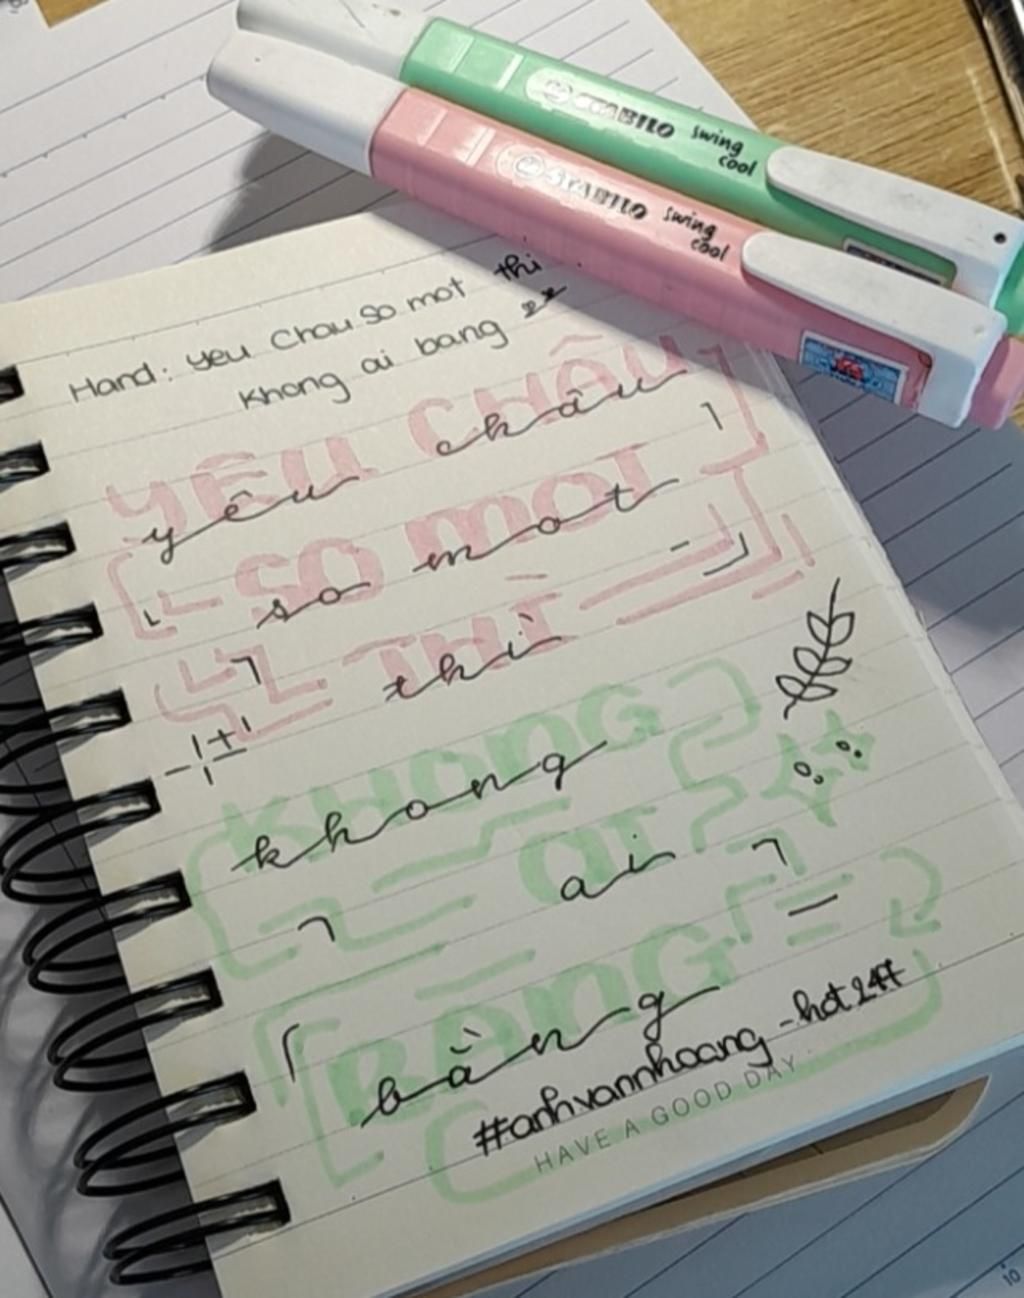 STABILO swing cool
STABILO swing cool
Hand: yeu Chau So mot thi
Khong ai bang
YÊU CHÂU
yêu châu
SO MOT
so mot
THÌ
thì
KHONG
khong
ai
ai
BẰNG
bằng
#anhvannhoang_hot247
HAVE A GOOD DAY
10